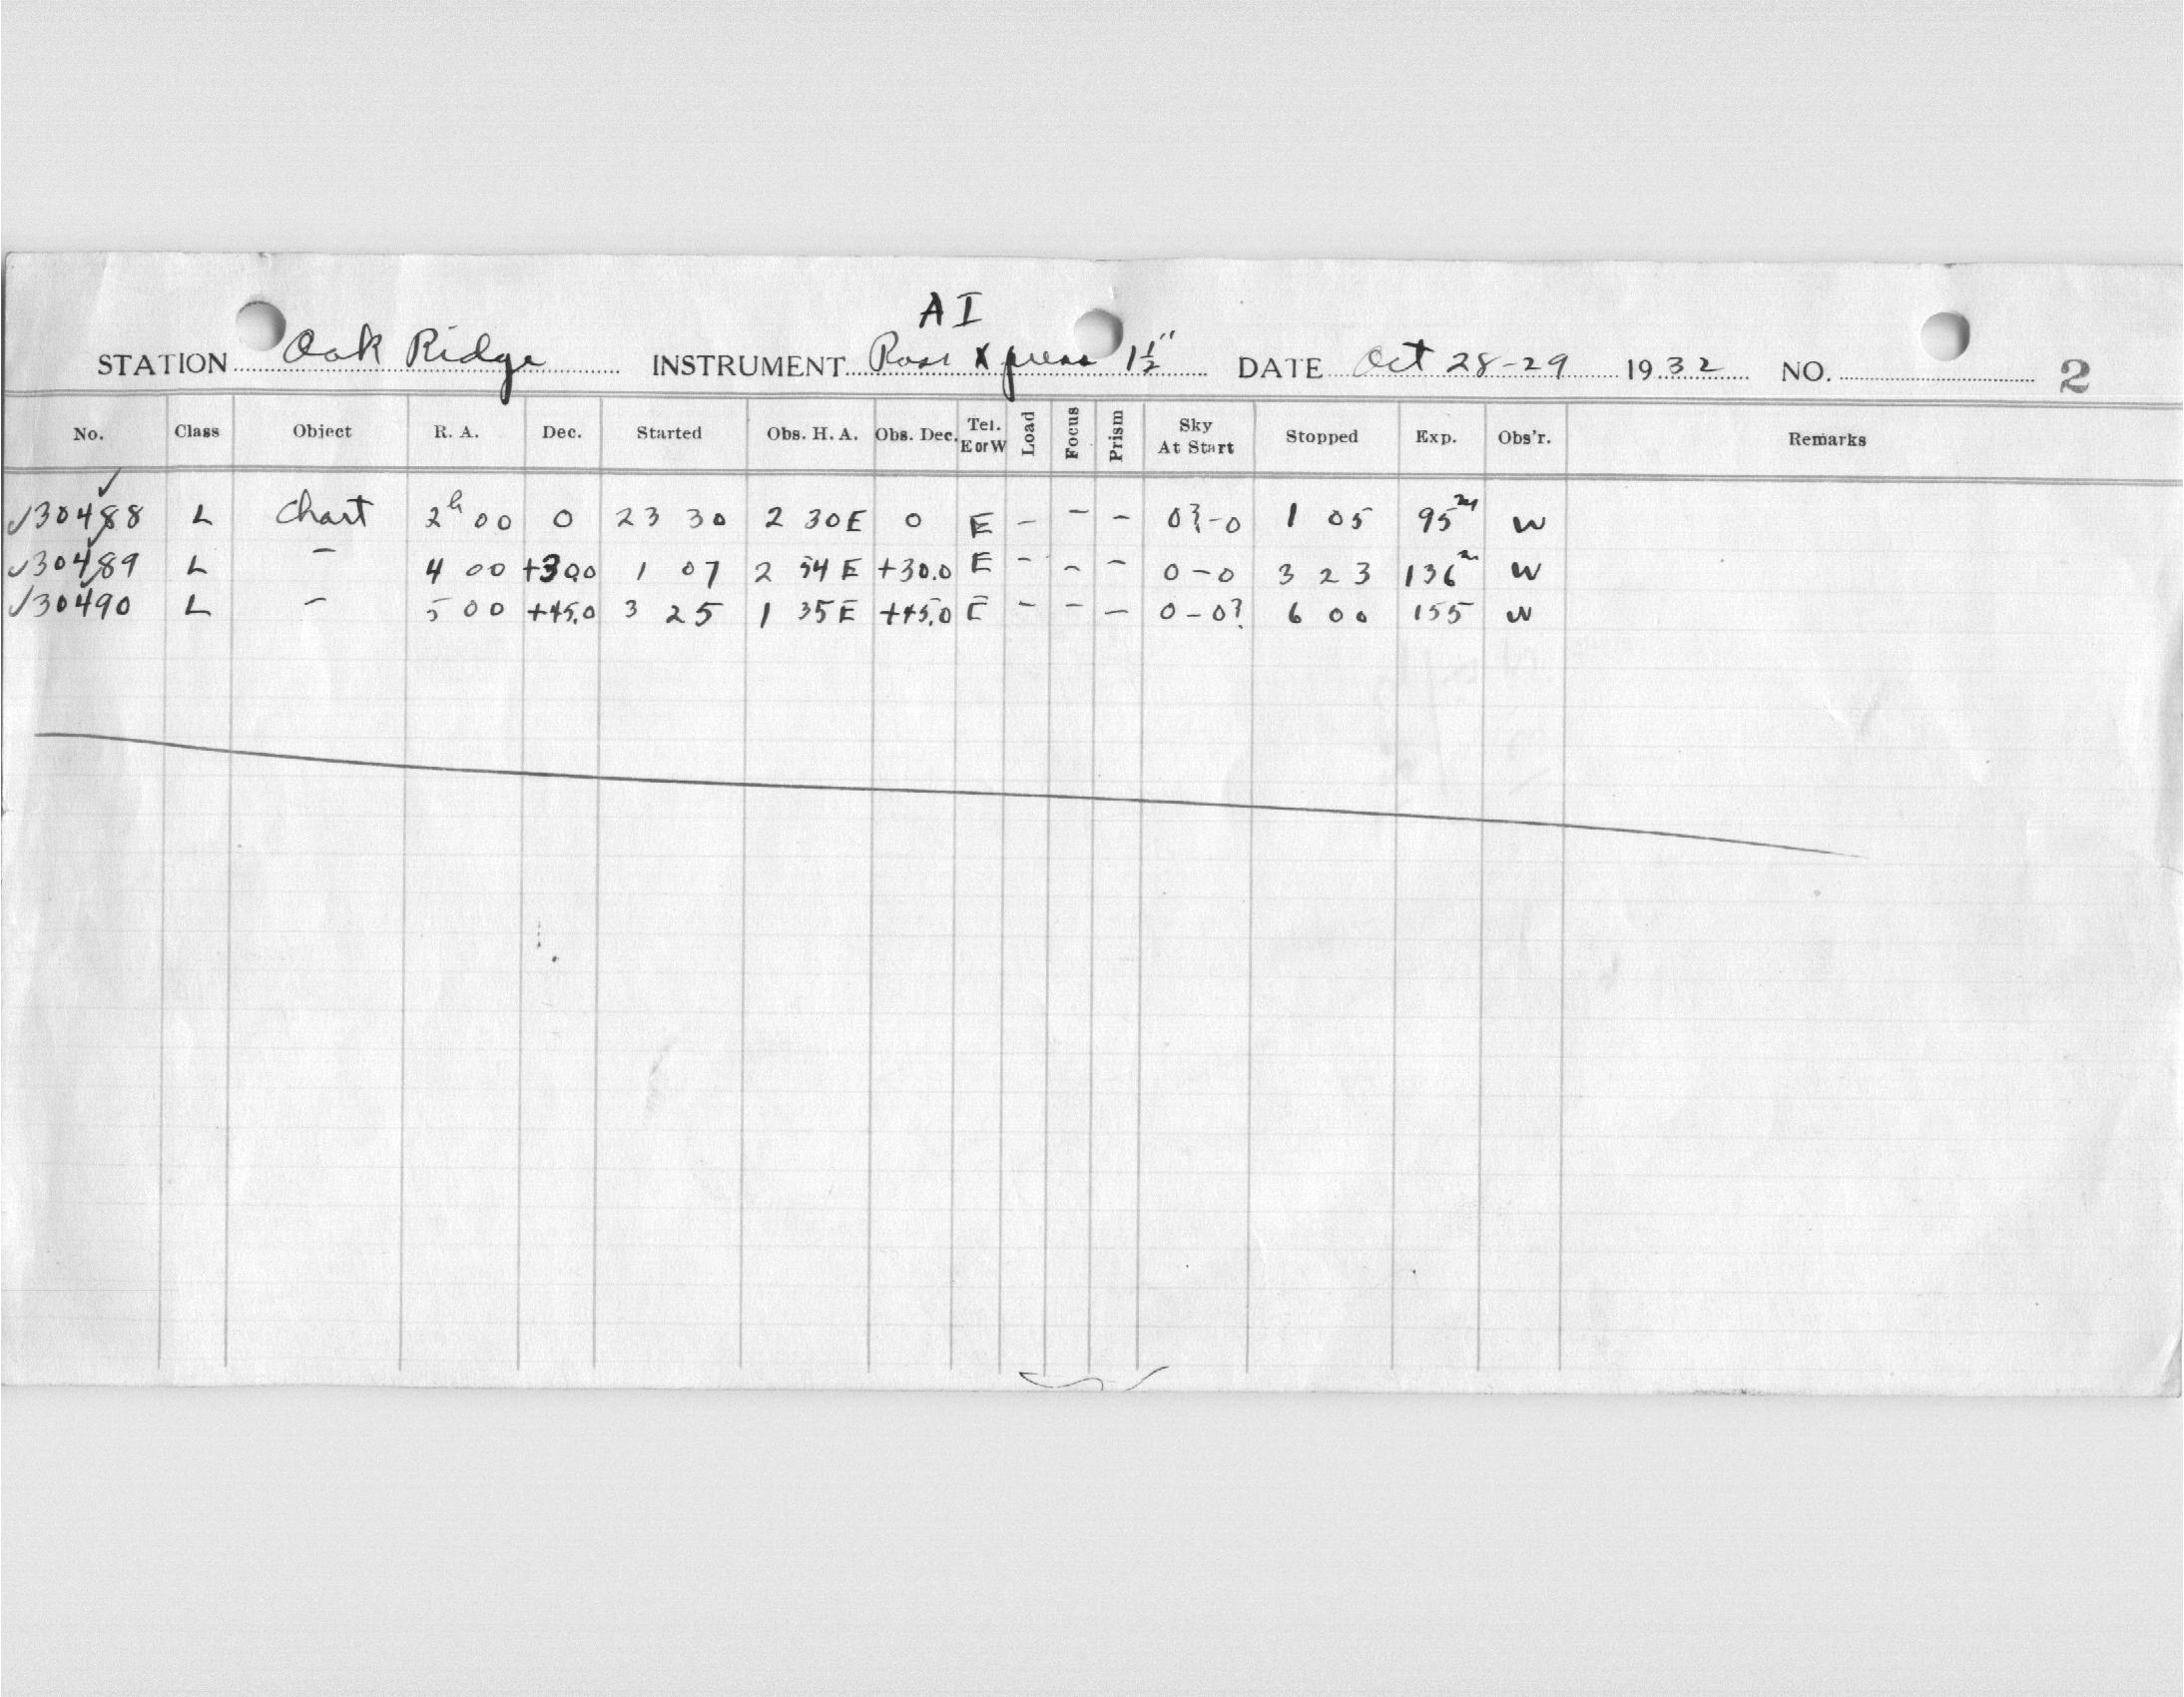 AI
STATION Oak Ridge INSTRUMENT Ross Xpress 1½" DATE Oct 28-29 1932 NO. 2
No. Class Object R. A. Dec. Started Obs. H. A. Obs. Dec. Tel. E or W Load Focus Prism Sky At Start Stopped Exp. Obs'r. Remarks
✓30488 L Chart 2h 00 0 23 30 2 30E 0 E - - - 0?-0 1 05 95m W
✓30489 L - 4 00 +30.0 1 07 2 54 E +30.0 E - - - 0-0 3 23 136m W
✓30490 L - 5 00 +45.0 3 25 1 35E +45.0 E - - - 0-0? 6 00 155 W